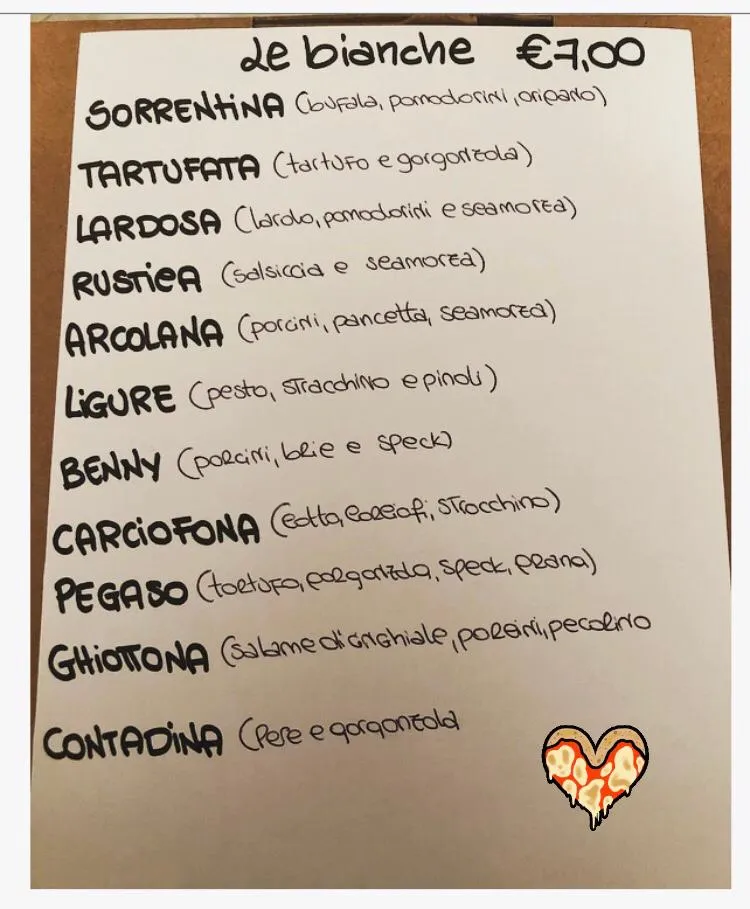 Le bianche €7,00
SORRENTINA (bufala, pomodorini, origano)
TARTUFATA (tartufo e gorgonzola)
LARDOSA (lardo, pomodorini e scamorza)
RUSTICA (salsiccia e scamorza)
ARCOLANA (porcini, pancetta, scamorza)
LIGURE (pesto, stracchino e pinoli)
BENNY (porcini, brie e speck)
CARCIOFONA (cotto, carciofi, stracchino)
PEGASO (tartufo, gorgonzola, speck, grana)
GHIOTTONA (salame di cinghiale, porcini, pecorino
CONTADINA (Pere e gorgonzola